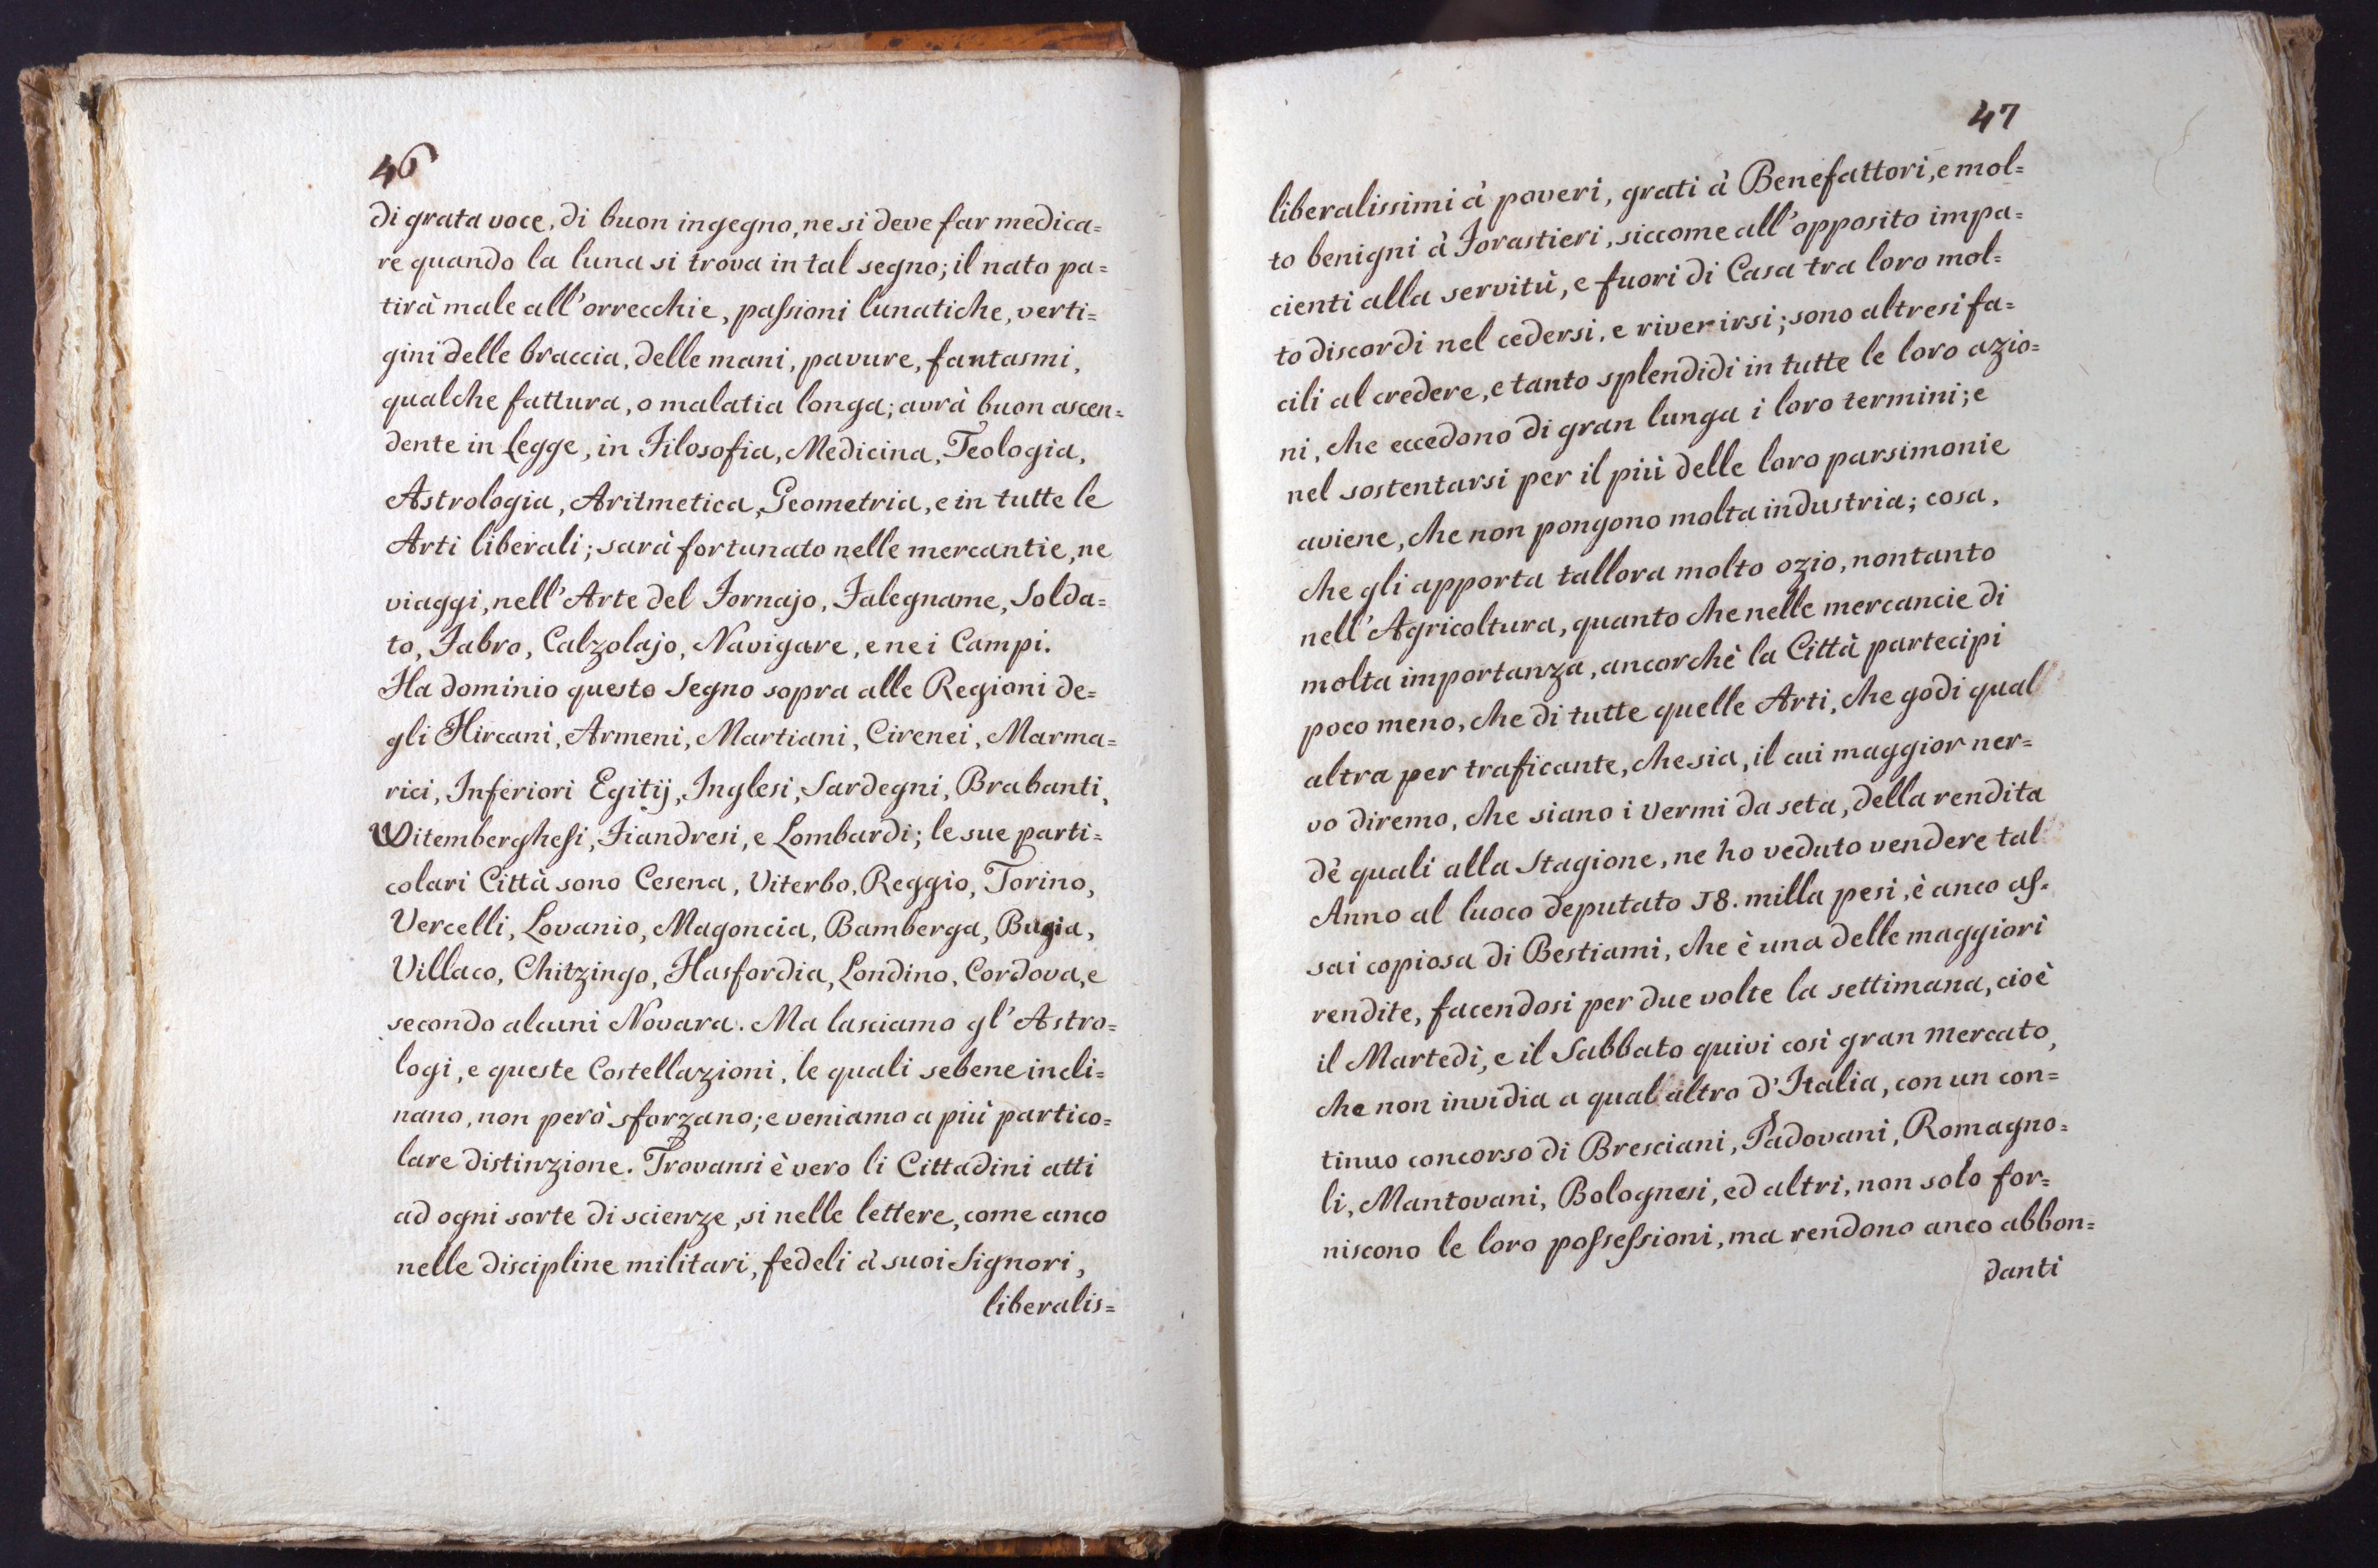 46
di grata voce, di buon ingegno, ne si deve far medica=
re quando la luna si trova in tal segno; il nato pa=
tirà male all'orrecchie, passioni lunatiche, verti=
gini delle braccia, delle mani, pavure, fantasmi,
qualche fattura, o malatia longa; avrà buon ascen=
dente in Legge, in Filosofia, Medicina, Teologia,
Astrologia, Aritmetica, Geometria, e in tutte le
Arti liberali; sarà fortunato nelle mercantie, ne
viaggi, nell'Arte del Fornajo, Falegname, Solda=
to, Fabro, Calzolajo, Navigare, e nei Campi.
Ha dominio questo Segno sopra alle Regioni de=
gli Hircani, Armeni, Martiani, Cirenei, Marma=
rici, Inferiori Egitij, Inglesi, Sardegni, Brabanti,
Witemberghesi, Fiandresi, e Lombardi; le sue parti=
colari Città sono Cesena, Viterbo, Reggio, Torino,
Vercelli, Lovanio, Magoncia, Bamberga, Bugia,
Villaco, Chitzingo, Hasfordia, Londino, Cordova, e
secondo alcuni Novara. Ma lasciamo gl'Astro=
logi, e queste Costellazioni, le quali sebene incli=
nano, non però sforzano; e veniamo a più partico=
lare distinzione. Trovansi è vero li Cittadini atti
ad ogni sorte di scienze, si nelle lettere, come anco
nelle discipline militari, fedeli à suoi Signori,
liberalis=
47
liberalissimi à poveri, grati à Benefattori, e mol=
to benigni à Forastieri, siccome all'opposito impa=
cienti alla servitù, e fuori di Casa tra loro mol=
to discordi nel cedersi, e riverirsi; sono altresi fa=
cili al credere, e tanto splendidi in tutte le loro azio=
ni, che eccedono di gran lunga i loro termini; e
nel sostentarsi per il più delle loro parsimonie
aviene, che non pongono molta industria; cosa,
che gli apporta tallora molto ozio, non tanto
nell'Agricoltura, quanto che nelle mercancie di
molta importanza, ancorchè la Città partecipi
poco meno, che di tutte quelle Arti, che godi qual
altra per traficante, che sia, il cui maggior ner=
vo diremo, che siano i vermi da seta, della rendita
dè quali alla Stagione, ne ho veduto vendere tal
Anno al luoco deputato 18. milla pesi, è anco as=
sai copiosa di Bestiami, che è una delle maggiori
rendite, facendosi per due volte la settimana, cioè
il Martedì, e il Sabbato quivi così gran mercato,
che non invidia a qual altro d'Italia, con un con=
tinuo concorso di Bresciani, Padovani, Romagno=
li, Mantovani, Bolognesi, ed altri, non solo for=
niscono le loro possessioni, ma rendono anco abbon=
danti